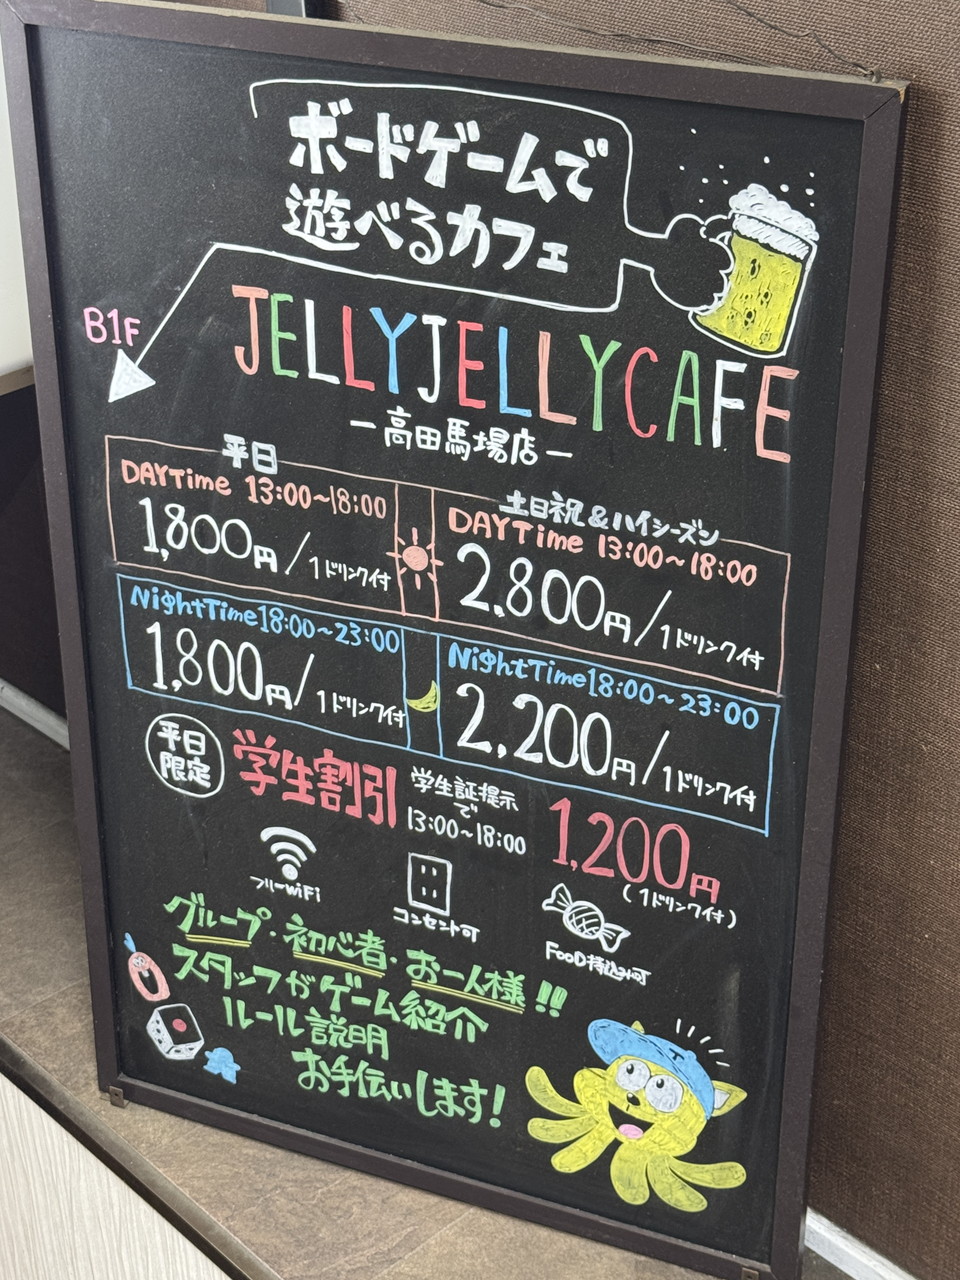 ボードゲームで
遊べるカフェ
B1F
JELLYJELLYCAFE
ー高田馬場店ー
平日
DAYTime 13:00〜18:00
1,800円/1ドリンク付
土日祝&ハイシーズン
DAYTime 13:00〜18:00
2,800円/1ドリンク付
NightTime18:00〜23:00
1,800円/1ドリンク付
NightTime18:00〜23:00
2,200円/1ドリンク付
平日
限定
学生割引
学生証提示
で
13:00〜18:00
1,200円
(1ドリンク付)
フリーWiFi
コンセント可
FooD持込み可
グループ・初心者・お一人様!!
スタッフがゲーム紹介
ルール説明
お手伝いします!